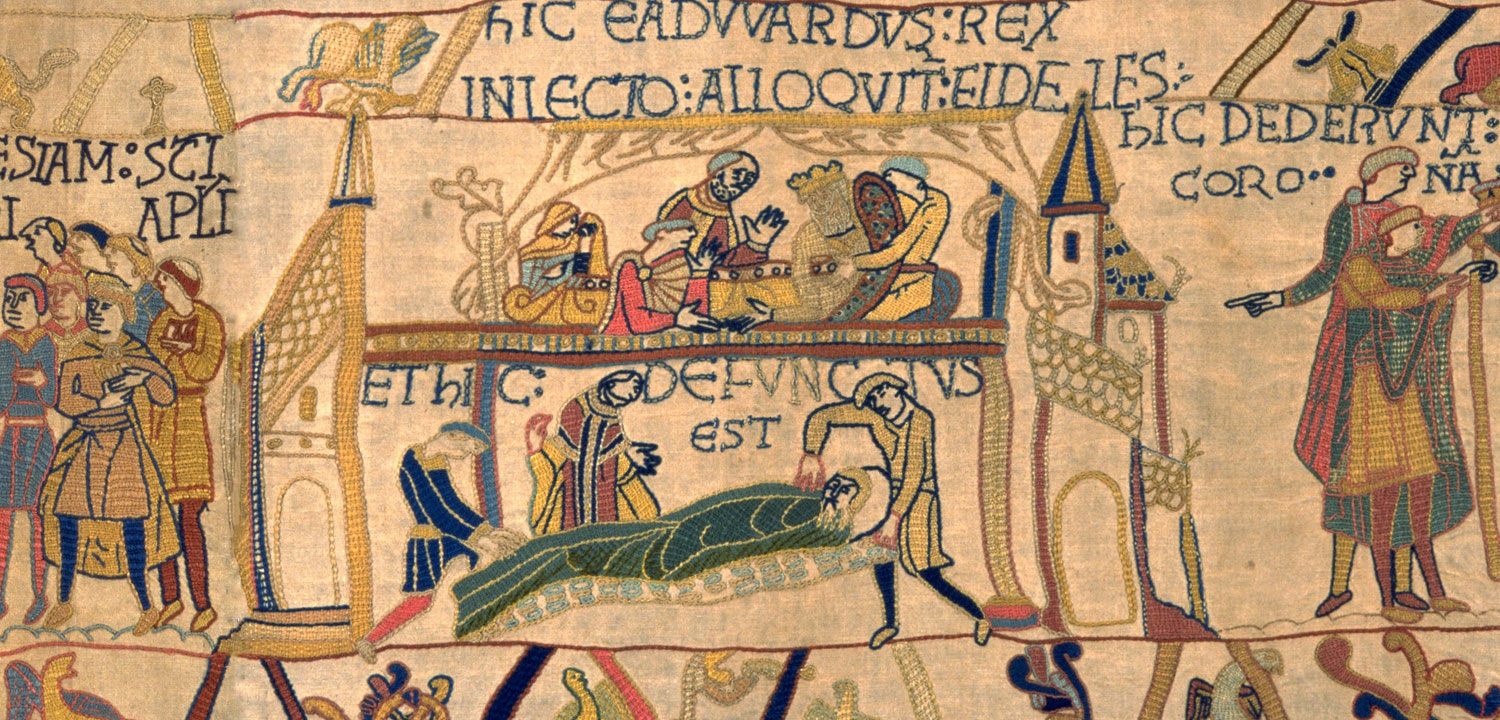 ESIAM : SCI
I APLI
hIC EADVVARDVS : REX
IN LECTO : ALLOQVIT : FIDELES :
ET hIC : DEFVNCTVS
EST
hIC DEDERVNT :
CORO·· NA